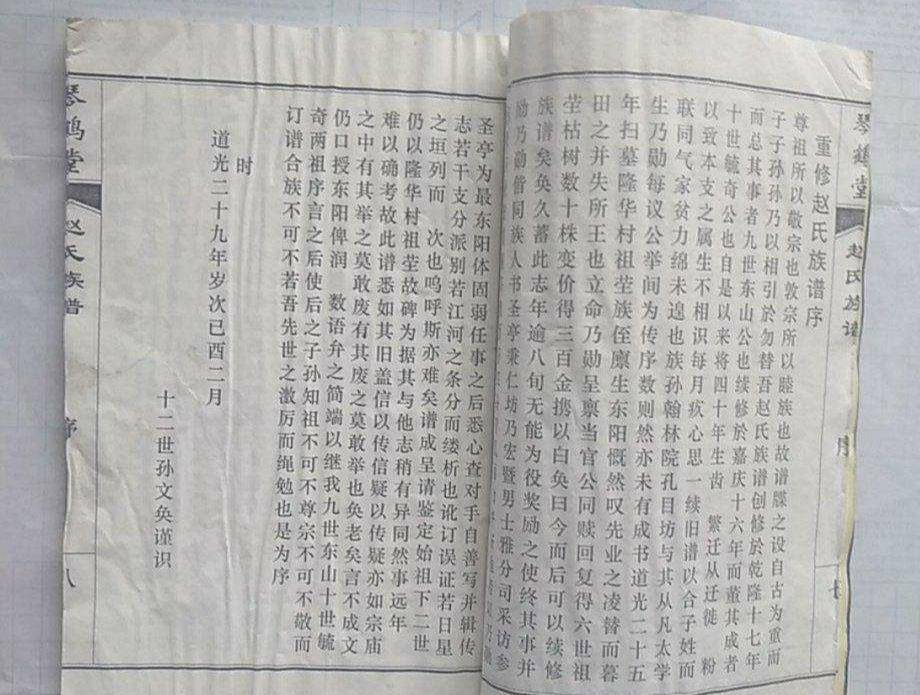 重修赵氏族谱序
尊祖所以敬宗也敦宗所以睦族也故谱牒之设自古为重而
子子孙孙乃以相引於勿替吾赵氏族谱创修於乾隆十七年
而总其事者九世东山公也续修於嘉庆十六年而董其成者
十世毓奇公也自是以来将四十年生齿 繁迁从迁徙 粉
以致本支之属生不相识每月疚心思一续旧谱以合子姓而
联同气家贫力绵未遑也族孙翰林院孔目坊与其从凡太学
生乃勋每议公举间为传序数则然亦未有成书道光二十五
年扫墓隆华村祖茔族侄廪生东阳慨然叹先业之凌替而暮
田之并失所王也立命乃勋呈禀当官公同赎回复得六世祖
茔枯树数十株变价得三百金携以白奂曰今而后可以续修
族谱矣奂久蓄此志年逾八旬无能为役奖励之使终其事并
勋乃勋偕同族人书圣亭秉仁坊乃宏暨男士雅分司采访参
圣亭为最东阳体固弱任事之后悉心查对手自善写并辑传
志若干支分派别若江河之条分而缕析也讹订误证若日星
之垣列而 次也呜呼斯亦难矣谱成呈请鉴定始祖下二世
仍以隆华村祖茔故碑为据其与他志稍有异同然事远年
难以确考故此谱悉如其旧盖信以传信疑以传疑亦如宗庙
之中有其举之莫敢废有其废之莫敢举也奂老矣言不成文
仍口授东阳俾润 数语弁之简端以继我九世东山十世毓
奇两祖序言之后使后之子孙知祖不可不尊宗不可不敬而
订谱合族不可不若吾先世之激厉而绳勉也是为序
时
道光二十九年岁次已酉二月
十二世孙文奂谨识
琴鹤堂
赵氏族谱
序
七
琴鹤堂
赵氏族谱
序
八